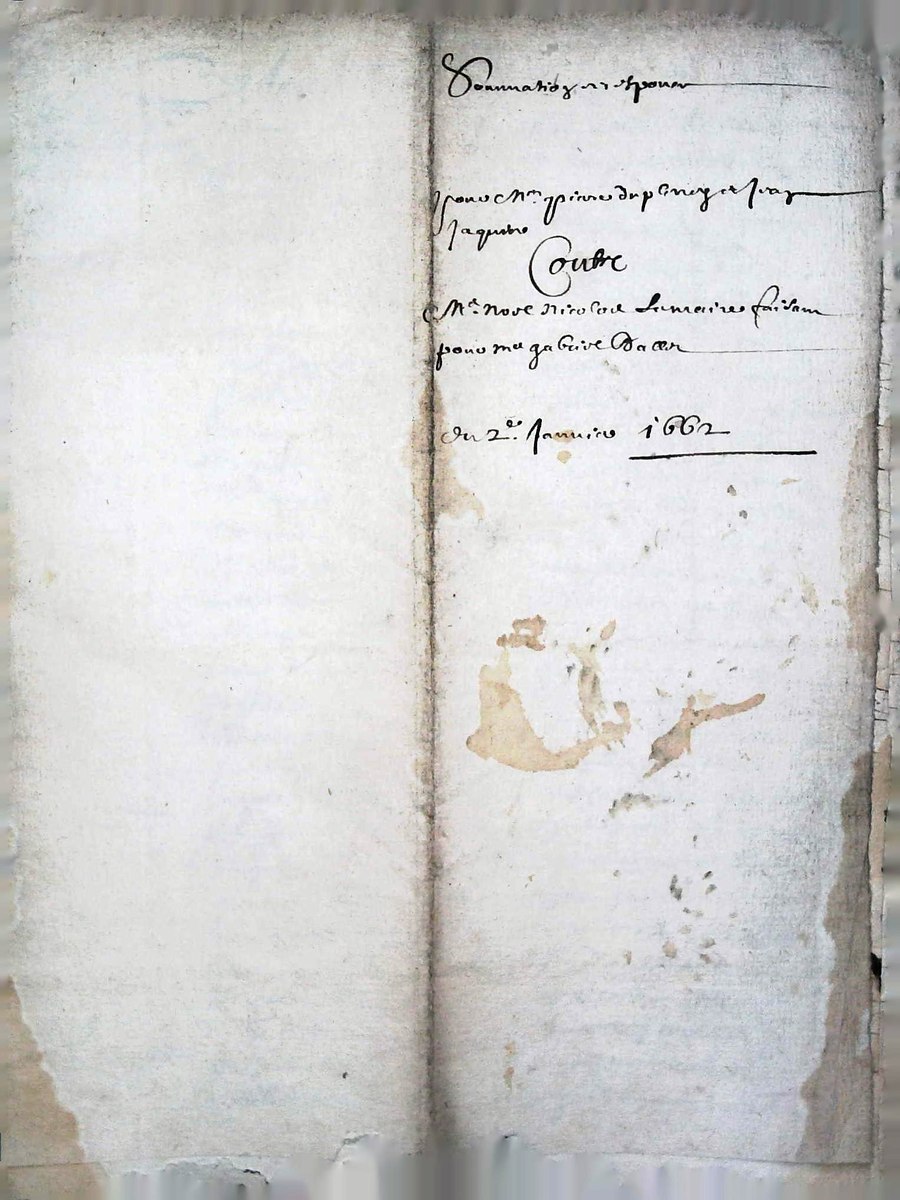 Sommation et responce
pour Mre pierre du plenez et Jean
Jaquere
Contre
Me Noel Nicolas Lemaire faisant
pour me gabriel
du 2e. Janvier 1662